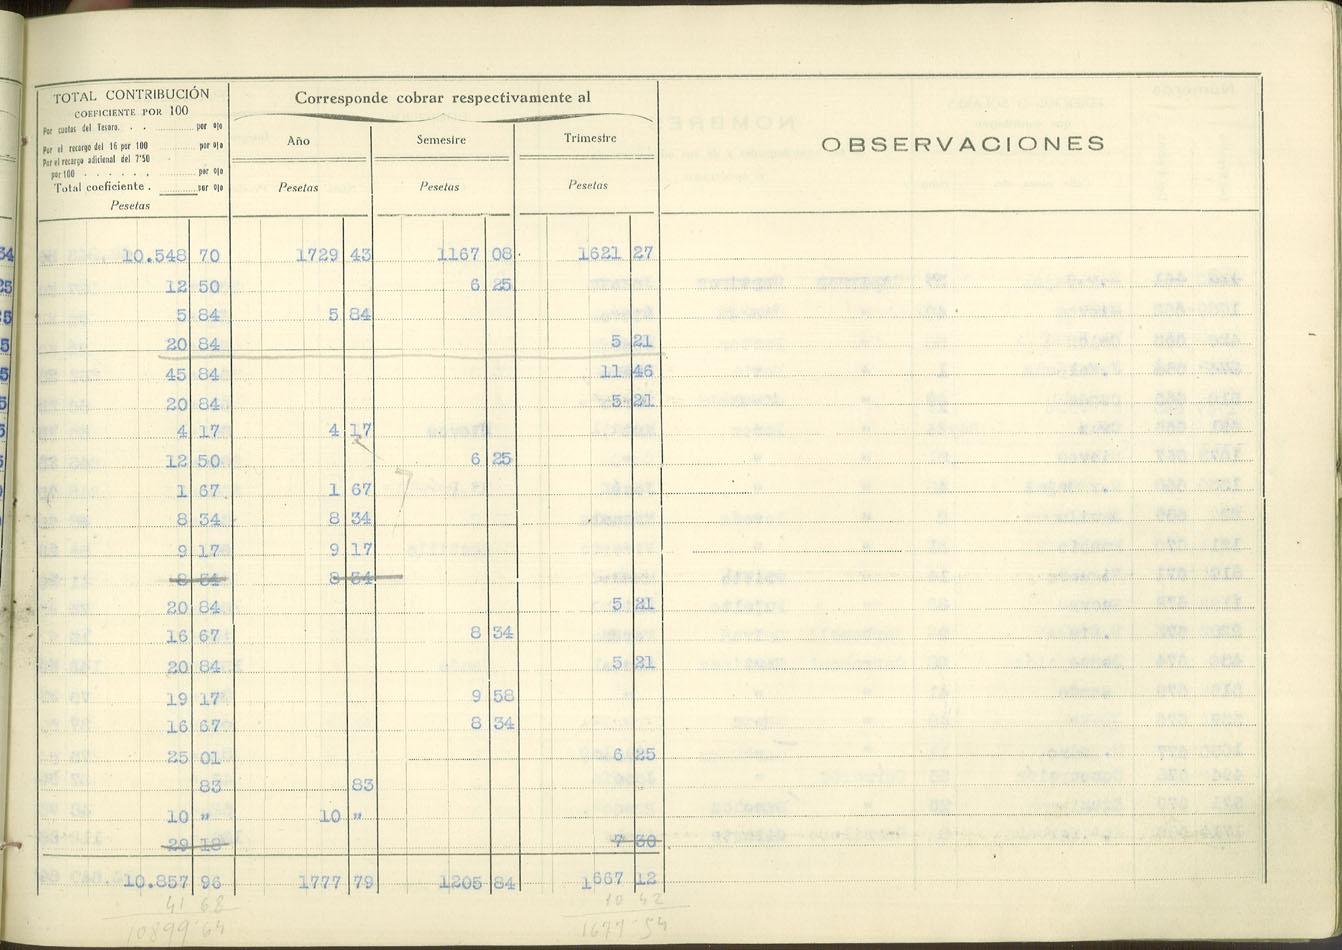 TOTAL CONTRIBUCIÓN
COEFICIENTE POR 100
Por cuotas del Tesoro. . . ............ por 0|0
Por el recargo del 16 por 100 ............ por 0|0
Por el recargo adicional del 7'50
por 100 . . . . . . ............ por 0|0
Total coeficiente . ............ por 0|0
Pesetas
Corresponde cobrar respectivamente al
Año Semestre Trimestre
Pesetas Pesetas Pesetas
OBSERVACIONES
34 10.548 70 1729 43 1167 08 1621 27
25 12 50 6 25
5 5 84 5 84
5 20 84 5 21
5 45 84 11 46
5 20 84 5 21
5 4 17 4 17
5 12 50 6 25
1 67 1 67
8 34 8 34
9 17 9 17
8 34 8 34
20 84 5 21
16 67 8 34
20 84 5 21
19 17 9 58
16 67 8 34
25 01 6 25
83 83
10 " 10 "
29 18 7 30
10.857 96 1777 79 1205 84 1667 12
41 68 10 42
10899 64 1677 54